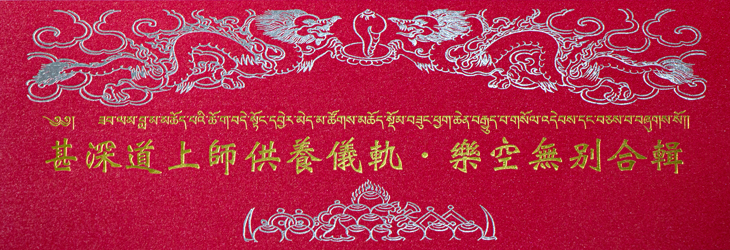 ༄༅། ཟབ་ལམ་བླ་མ་མཆོད་པའི་ཆོ་ག་བདེ་སྟོང་དབྱེར་མེད་མ་ཚོགས་མཆོད་སྡོམ་བཟུང་ཕྱག་ཆེན་བརྒྱུད་པ་གསོལ་འདེབས་དང་བཅས་པ་བཞུགས་སོ།།
甚深道上師供養儀軌·樂空無别合輯